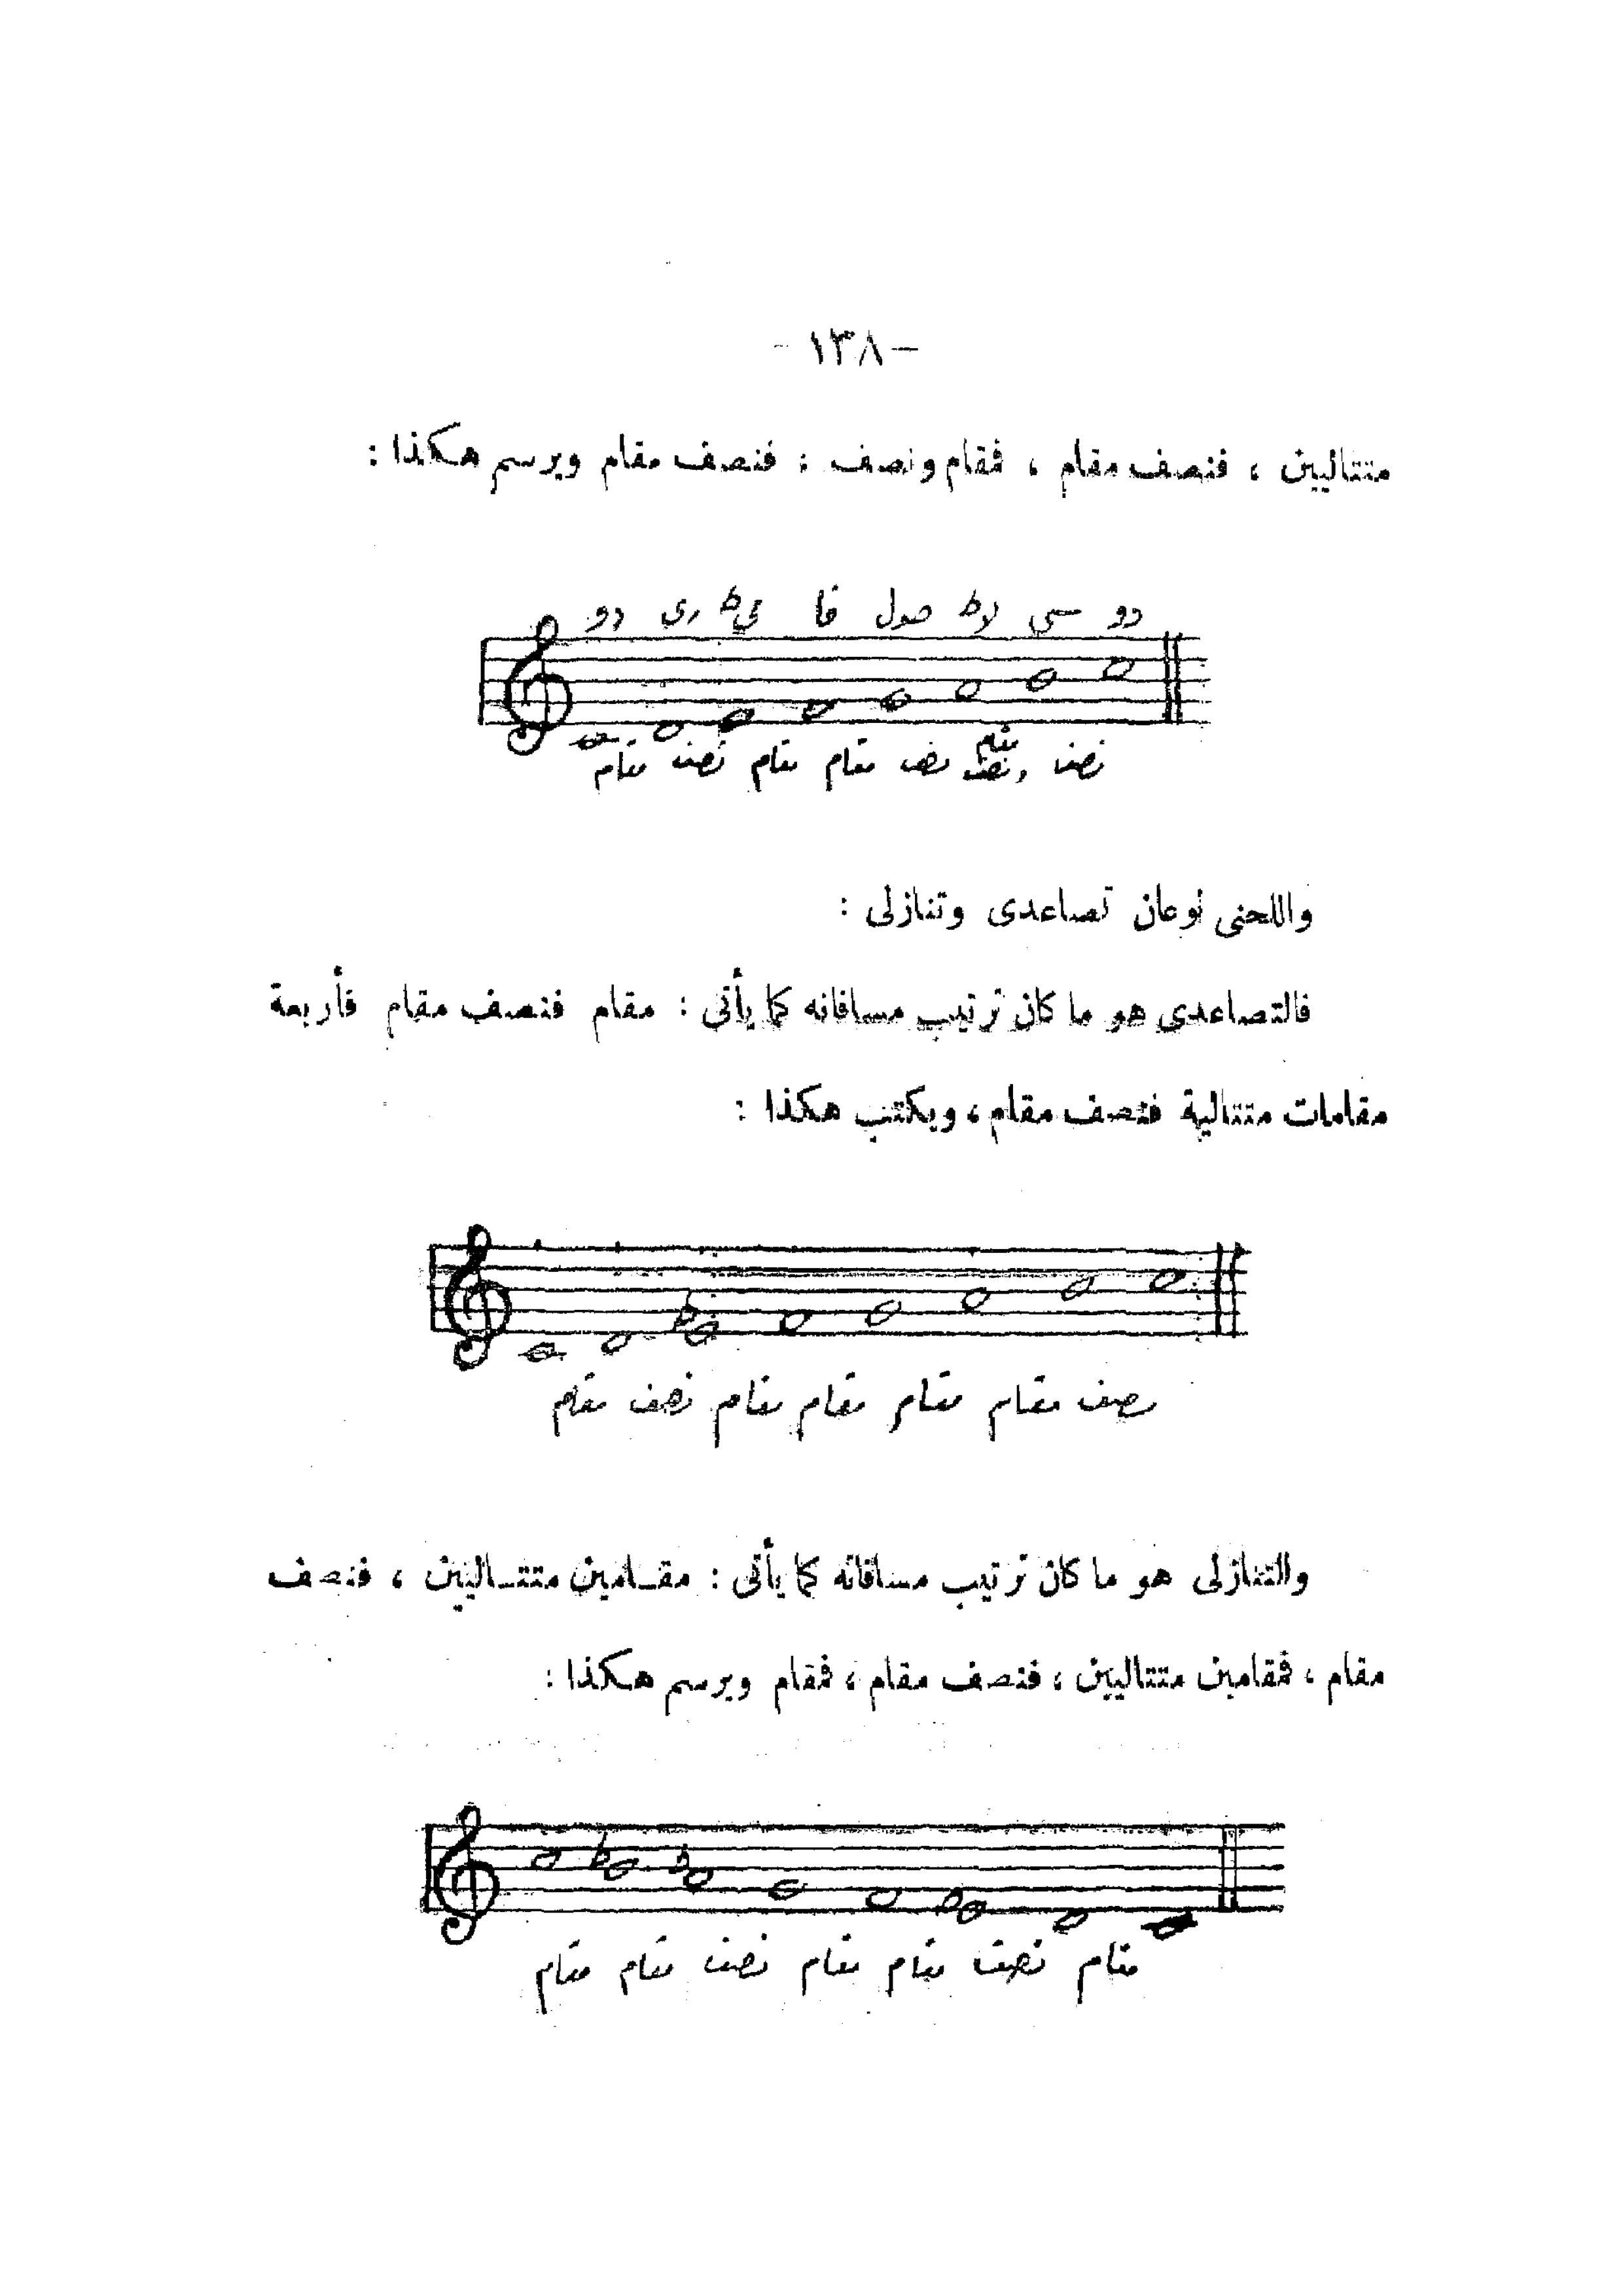 - ١٣٨ -
متتاليين ، فنصف مقام ، فمقام ونصف ، فنصف مقام ويرسم هكذا :
دو ري مي b فا صول لا b سي دو
مقام نصف مقام مقام نصف مقام ونصف نصف
واللحنى نوعان تصاعدى وتنازلى :
فالتصاعدى هو ما كان ترتيب مسافاته كما يأتى : مقام فنصف مقام فأربعة
مقامات متتالية فنصف مقام ، ويكتب هكذا :
مقام نصف مقام مقام مقام مقام نصف
والتنازلى هو ما كان ترتيب مسافاته كما يأتى : مقامين متتاليين ، فنصف
مقام ، فمقامين متتاليين ، فنصف مقام ، فمقام ويرسم هكذا :
مقام مقام نصف مقام مقام نصف مقام